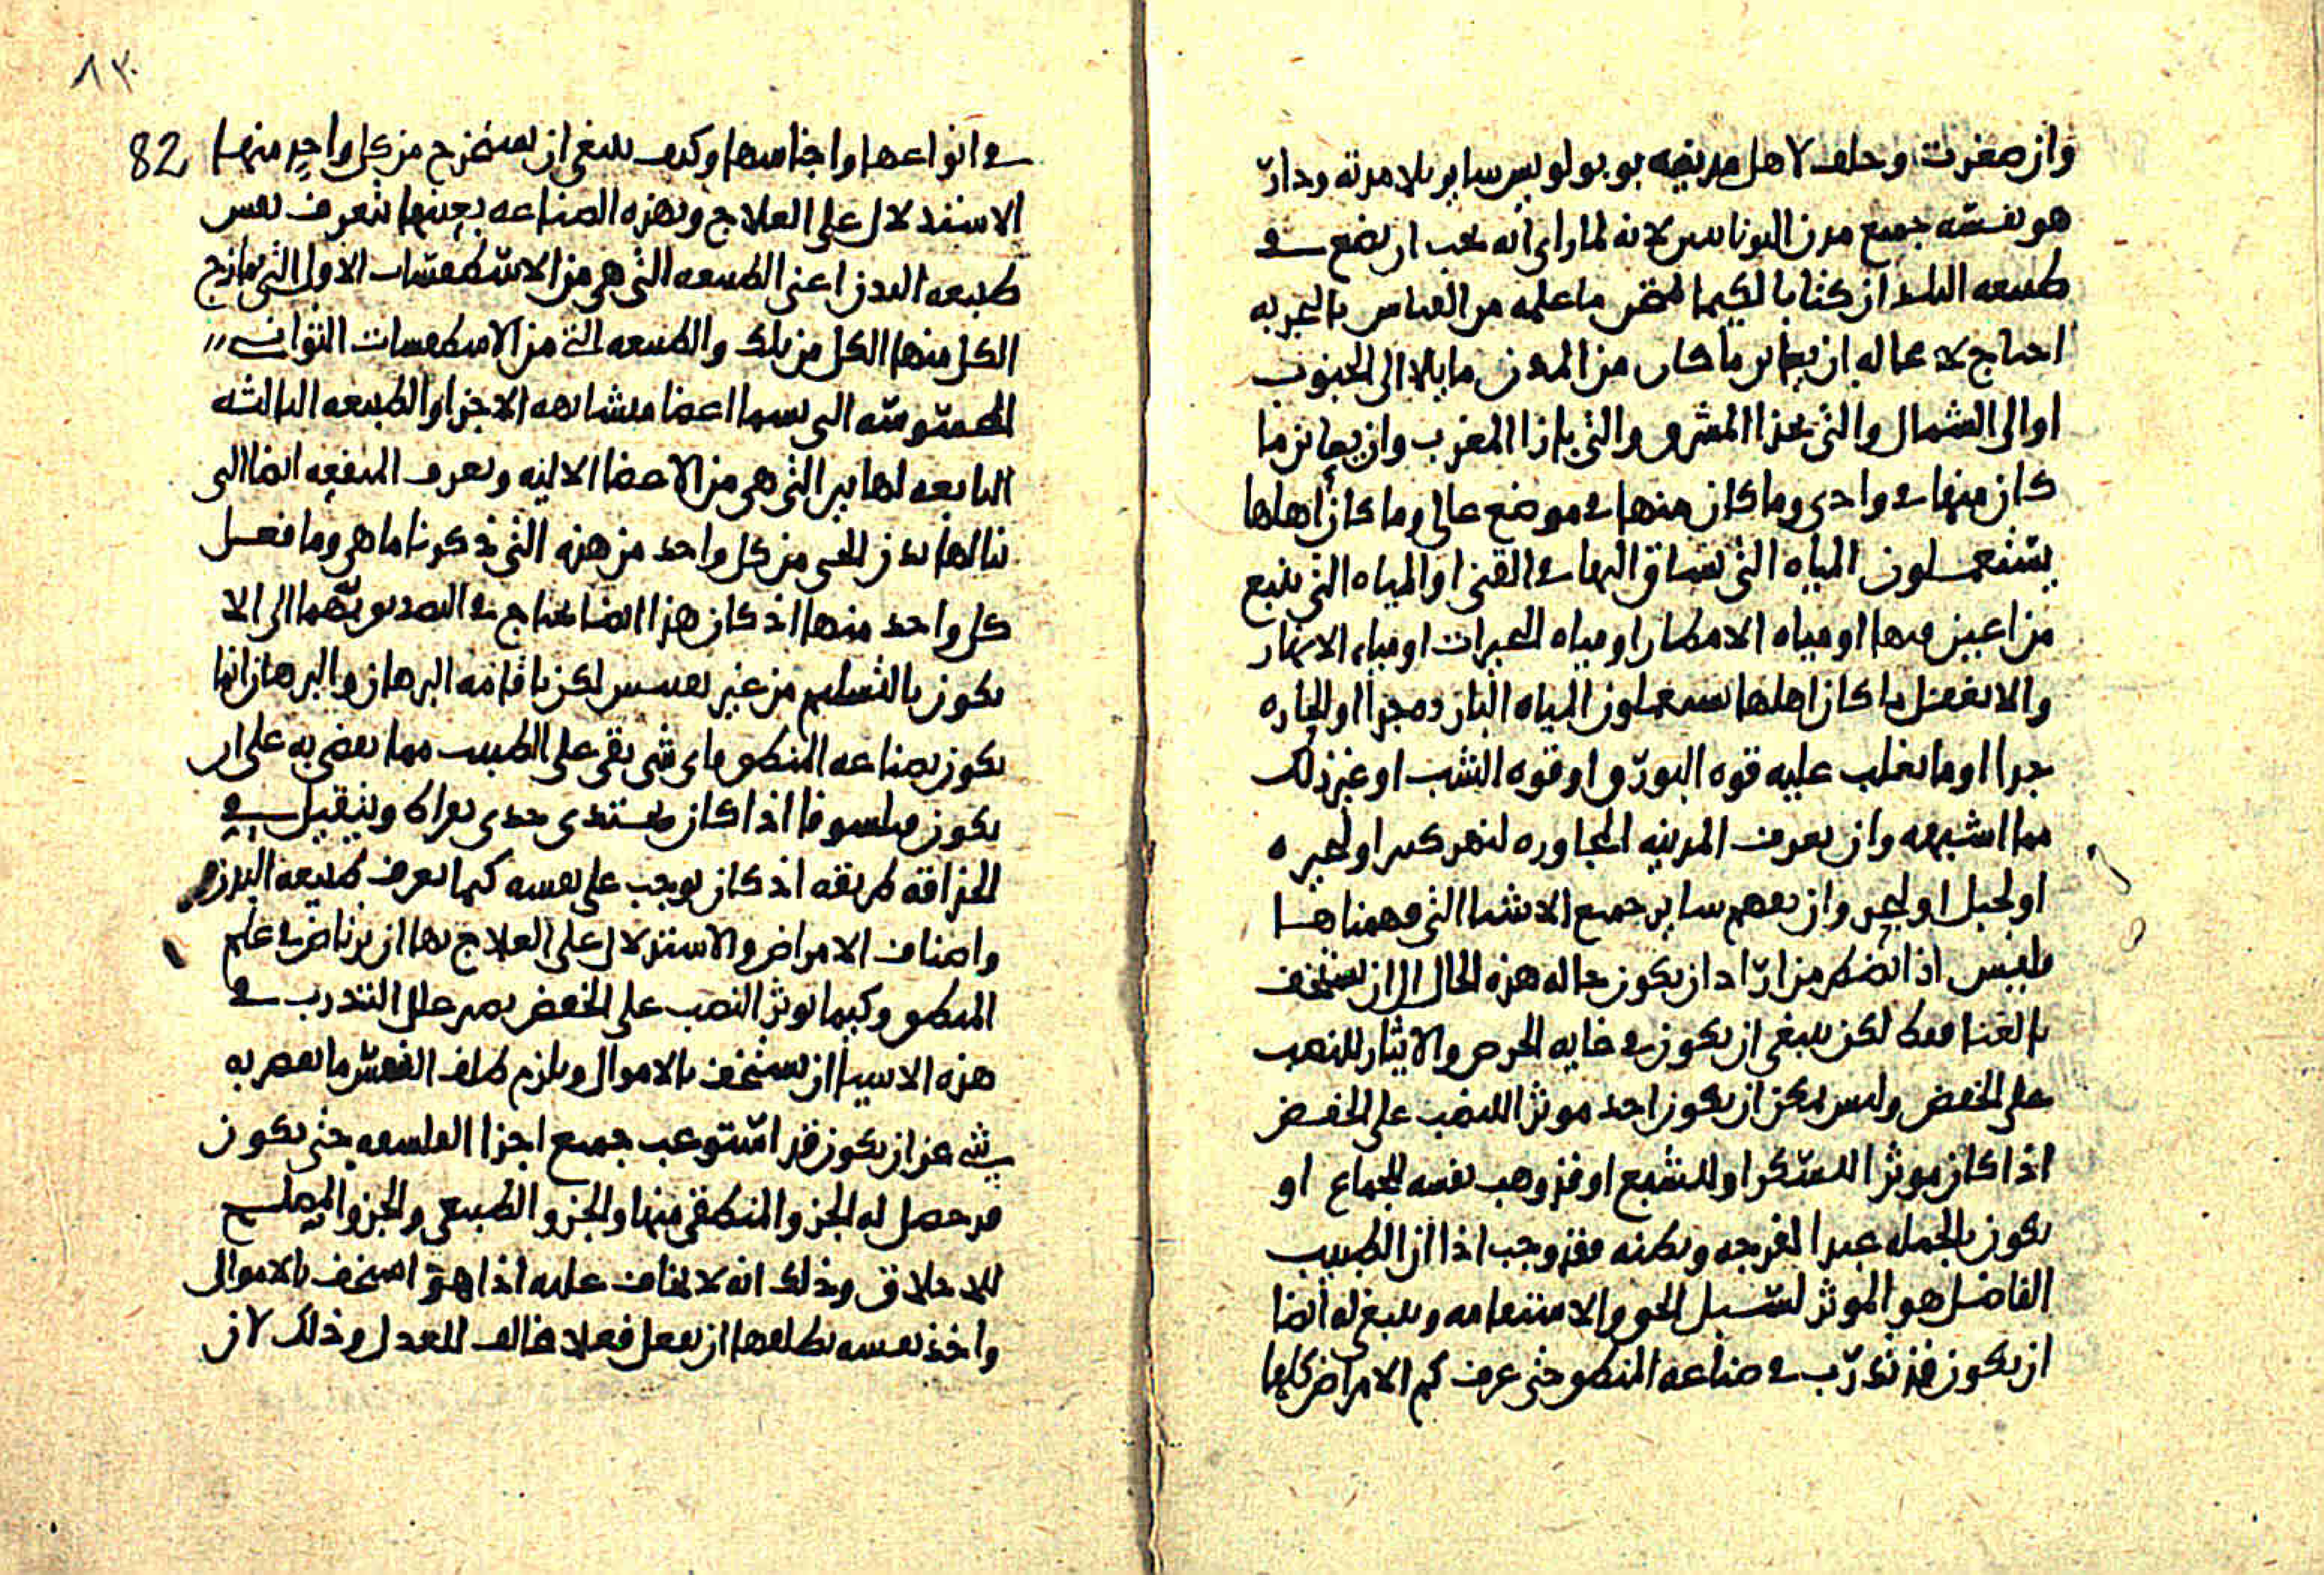 وان صغرت وخلف لاهل مدينه بوبولوبيس ساير بلامدته ودار
هو نفسه جميع مدن اليونانيين لانه لما راى انه يجب ان يضع في
طبيعه البلدان كتابا لكيما يختبر ما علمه من القياس بالتجربه
احتاج لا محاله ان يعاين ما كان من المدن مايلا الى الجنوب
او الى الشمال والتي بحذا المشرق والتي بازا المغرب وان يعاين ما
كان منها في وادى وما كان منها في موضع عالى وما كان اهلها
يستعملون المياه التي تساق اليها في القنى او المياه التي تنبع
من اعين فيها او مياه الامطار او مياه البحيرات او مياه الانهار
والا يغفل ما كان اهلها يستعملون المياه البارده جدا او الحاره
جدا او ما يغلب عليه قوه البورق او قوه الشب او غير ذلك
مما اشبهه وان يعرف المدينه المجاوره لنهر كبير او لبحيره
او لجبل او لبحر وان يفهم ساير جميع الاشيا التي فهمناها
فليس اذا يضطر من اراد ان يكون حاله هذه الحال الى ان يستخف
بالغنا فقط لكن ينبغي ان يكون في غايه الحرص والايثار للنصب
على الخفض وليس يمكن ان يكون احد موثرا للنصب على الخفض
اذا كان موثرا للسكر او للشبع او قد وهب نفسه للجماع او
يكون بالجمله عبدا لفرجه وبطنه فقد وجب اذا ان الطبيب
الفاضل هو الموثر لسبيل الحق والاستقامه وينبغي له ايضا
ان يكون قد تدرب في صناعه المنطق حتى عرف كم الامراض كلها
في انواعها واجناسها وكيف ينبغي ان يستخرج من كل واحد منها 82
الاستدلال على العلاج وبهذه الصناعه بعينها تتعرف نفس
طبيعه البدن اعنى الطبيعه التي هي من الاسطقسات الاول التي تمازج
الكل منها الكل من تلك والطبيعه التي من الاسطقسات الثواني
المحسوسه التي تسما اعضا متشابهه الاجزا والطبيعه الثالثه
التابعه لهاتين التي هي من الاعضا الاليه وتعرف المنفعه ايضا التي
تنالها بدن الحي من كل واحد من هذه التي ذكرنا ما هي وما فعل
كل واحد منها اذ كان هذا ايضا يحتاج في التصديق بهما الى الا
يكون بالتسليم من غير تفتيش لكن باقامه البرهان والبرهان انما
يكون بصناعه المنطق فاى شي بقى على الطبيب مما يفضي به على ان
يكون فيلسوفا اذا كان يستدى حدى بقراط ويتقيل في
الحذاقه طريقه اذ كان يوجب على نفسه كيما يعرف طبيعه البدن
واصناف الامراض والاستدلال على العلاج بها ان يرتاض في علم
المنطق وكيما يوثر النصب على الخفض بصبر على التدرب في
هذه الاشيا ان يستخف بالاموال ويلزم ظلف النفس ما يقصر به
شي عن ان يكون قد استوعب جميع اجزا الفلسفه حتى يكون
قد حصل له الجزو المنطقي منها والجزو الطبيعي والجزو المصلح
للاخلاق وذلك انه لا يخاف عليه اذا هو استخف بالاموال
واخذ نفسه بظلفها ان يفعل فعلا مخالف للعدل وذلك لان